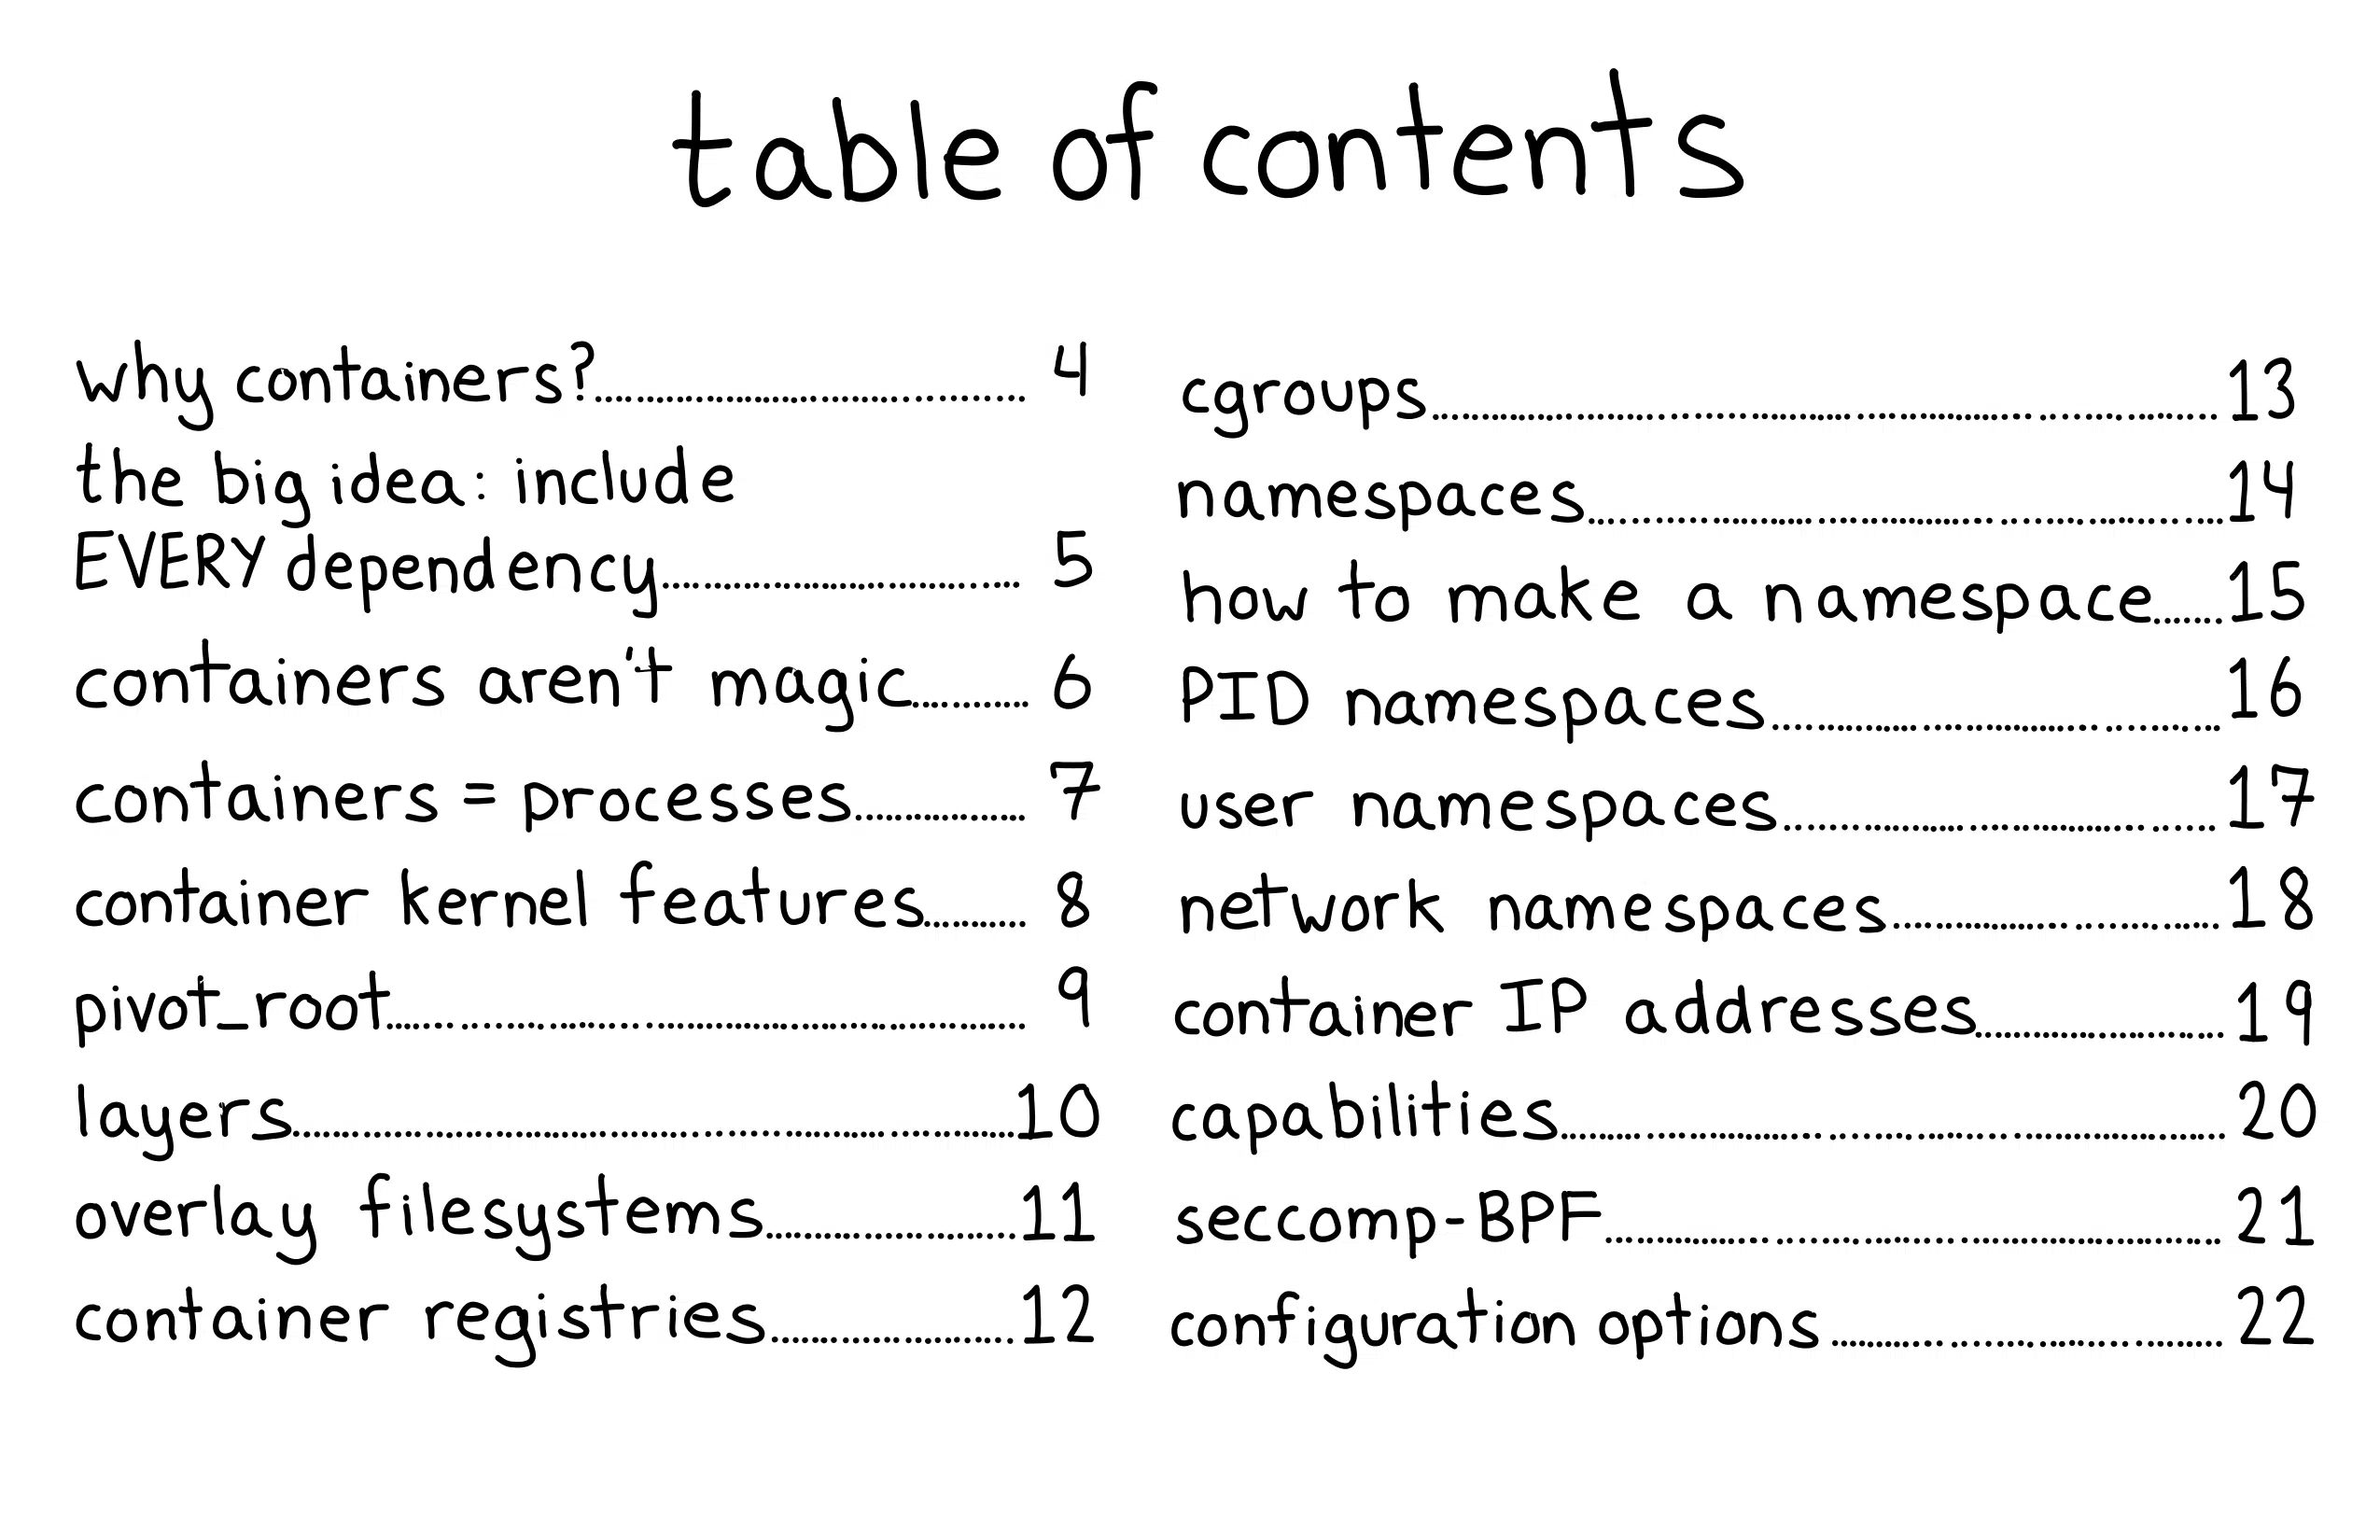 table of contents
why containers?.......................... 4
the big idea: include
EVERY dependency.......................... 5
containers aren't magic.......... 6
containers = processes.......... 7
container kernel features.......... 8
pivot_root.......................... 9
layers..........................10
overlay filesystems.......... 11
container registries.......... 12
cgroups.......................... 13
namespaces..........................14
how to make a namespace......15
PID namespaces.......................... 16
user namespaces.......................... 17
network namespaces.................... 18
container IP addresses.................... 19
capabilities.......................... 20
seccomp-BPF.......................... 21
configuration options .................... 22